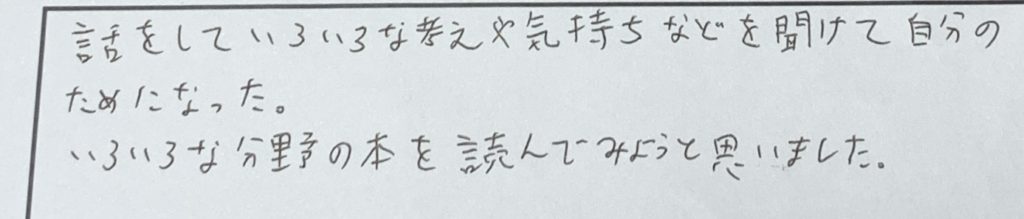 話をしていろいろな考えや気持ちなどを聞けて自分の
ためになった。
いろいろな分野の本を読んでみようと思いました。